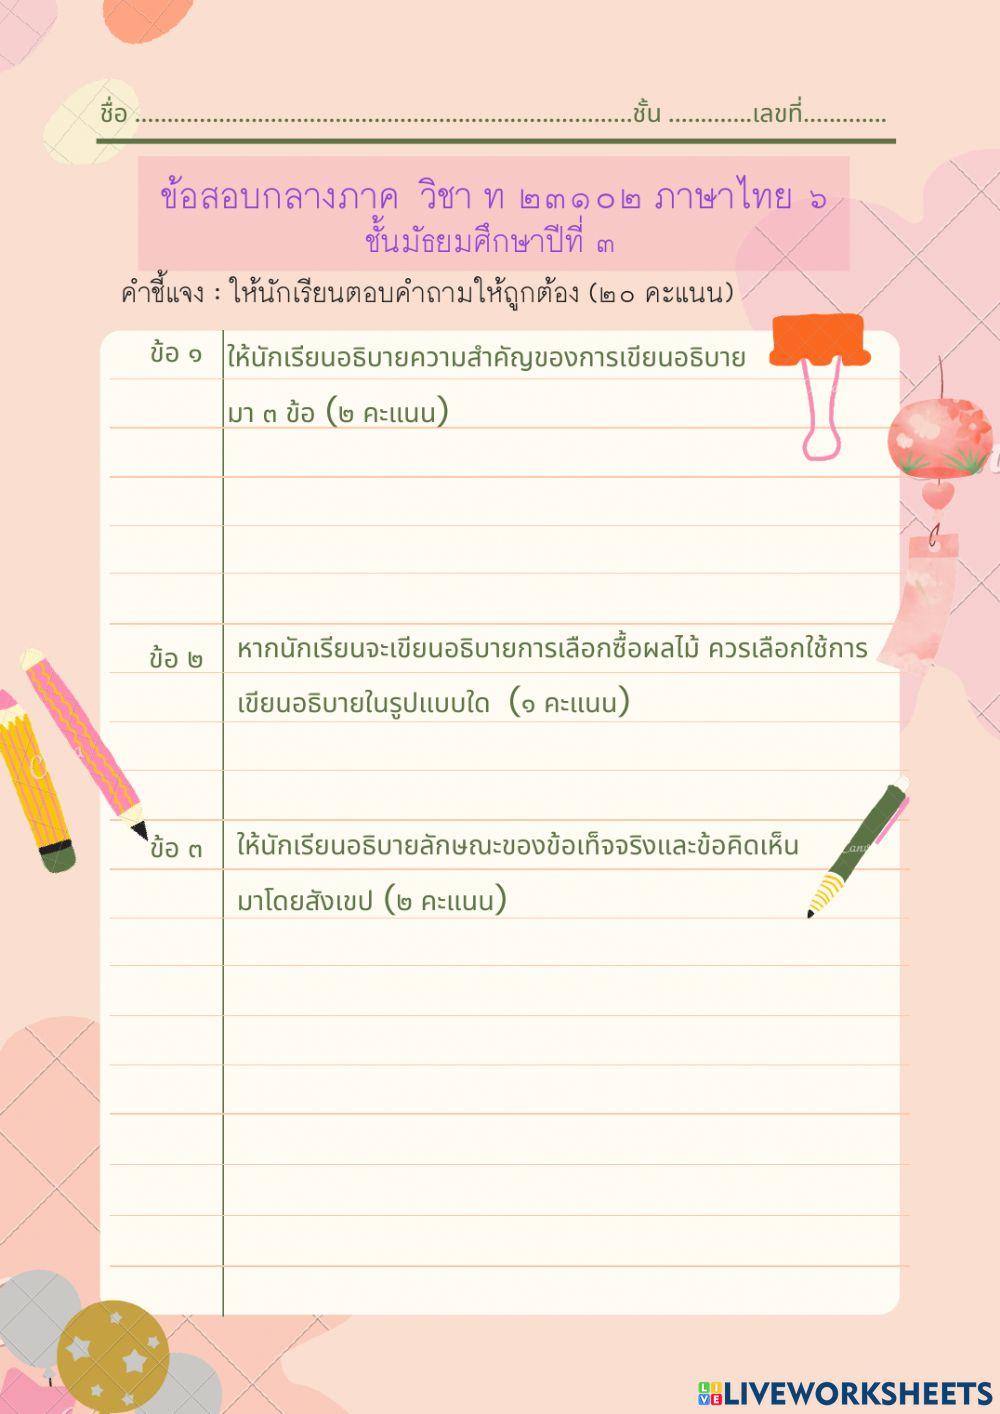 ชื่อ .............................................................................ชั้น .............เลขที่.............
ข้อสอบกลางภาค วิชา ท ๒๓๑๐๒ ภาษาไทย ๖
ชั้นมัธยมศึกษาปีที่ ๓
คำชี้แจง : ให้นักเรียนตอบคำถามให้ถูกต้อง (๒๐ คะแนน)
ข้อ ๑ ให้นักเรียนอธิบายความสำคัญของการเขียนอธิบาย
มา ๓ ข้อ (๒ คะแนน)
ข้อ ๒ หากนักเรียนจะเขียนอธิบายการเลือกซื้อผลไม้ ควรเลือกใช้การ
เขียนอธิบายในรูปแบบใด (๑ คะแนน)
ข้อ ๓ ให้นักเรียนอธิบายลักษณะของข้อเท็จจริงและข้อคิดเห็น
มาโดยสังเขป (๒ คะแนน)
LIVEWORKSHEETS